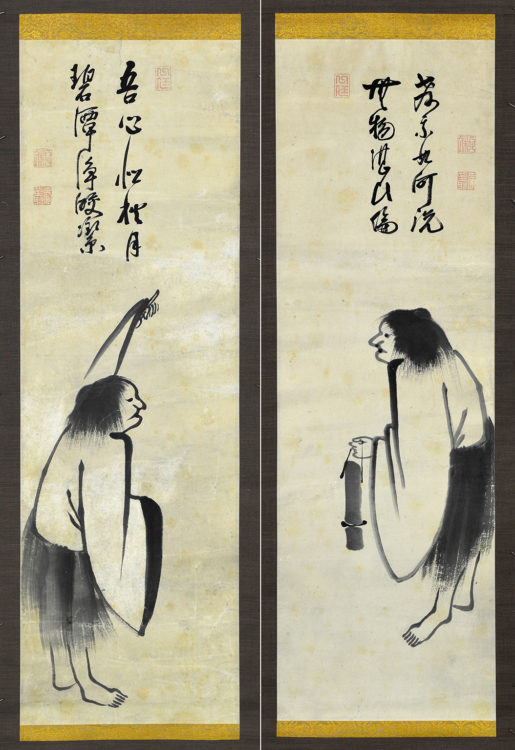 吾心似秋月
碧潭淨皎潔
無物堪比倫
教我如何説